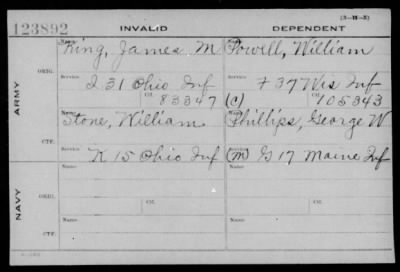 123892
INVALID DEPENDENT (3-18-5)
ARMY
ORIG.
Name Name
King, James M Powell, William
Service Service
I 31 Ohio Inf F 37 Wis Inf
Ctf. Ctf.
83347 (C) 105343
CTF.
Name Name
Stone, William Phillips, George W
Service Service
K 15 Ohio Inf (M) G 17 Maine Inf
NAVY
ORIG.
Name Name
Ctf. Ctf.
CTF.
Name Name